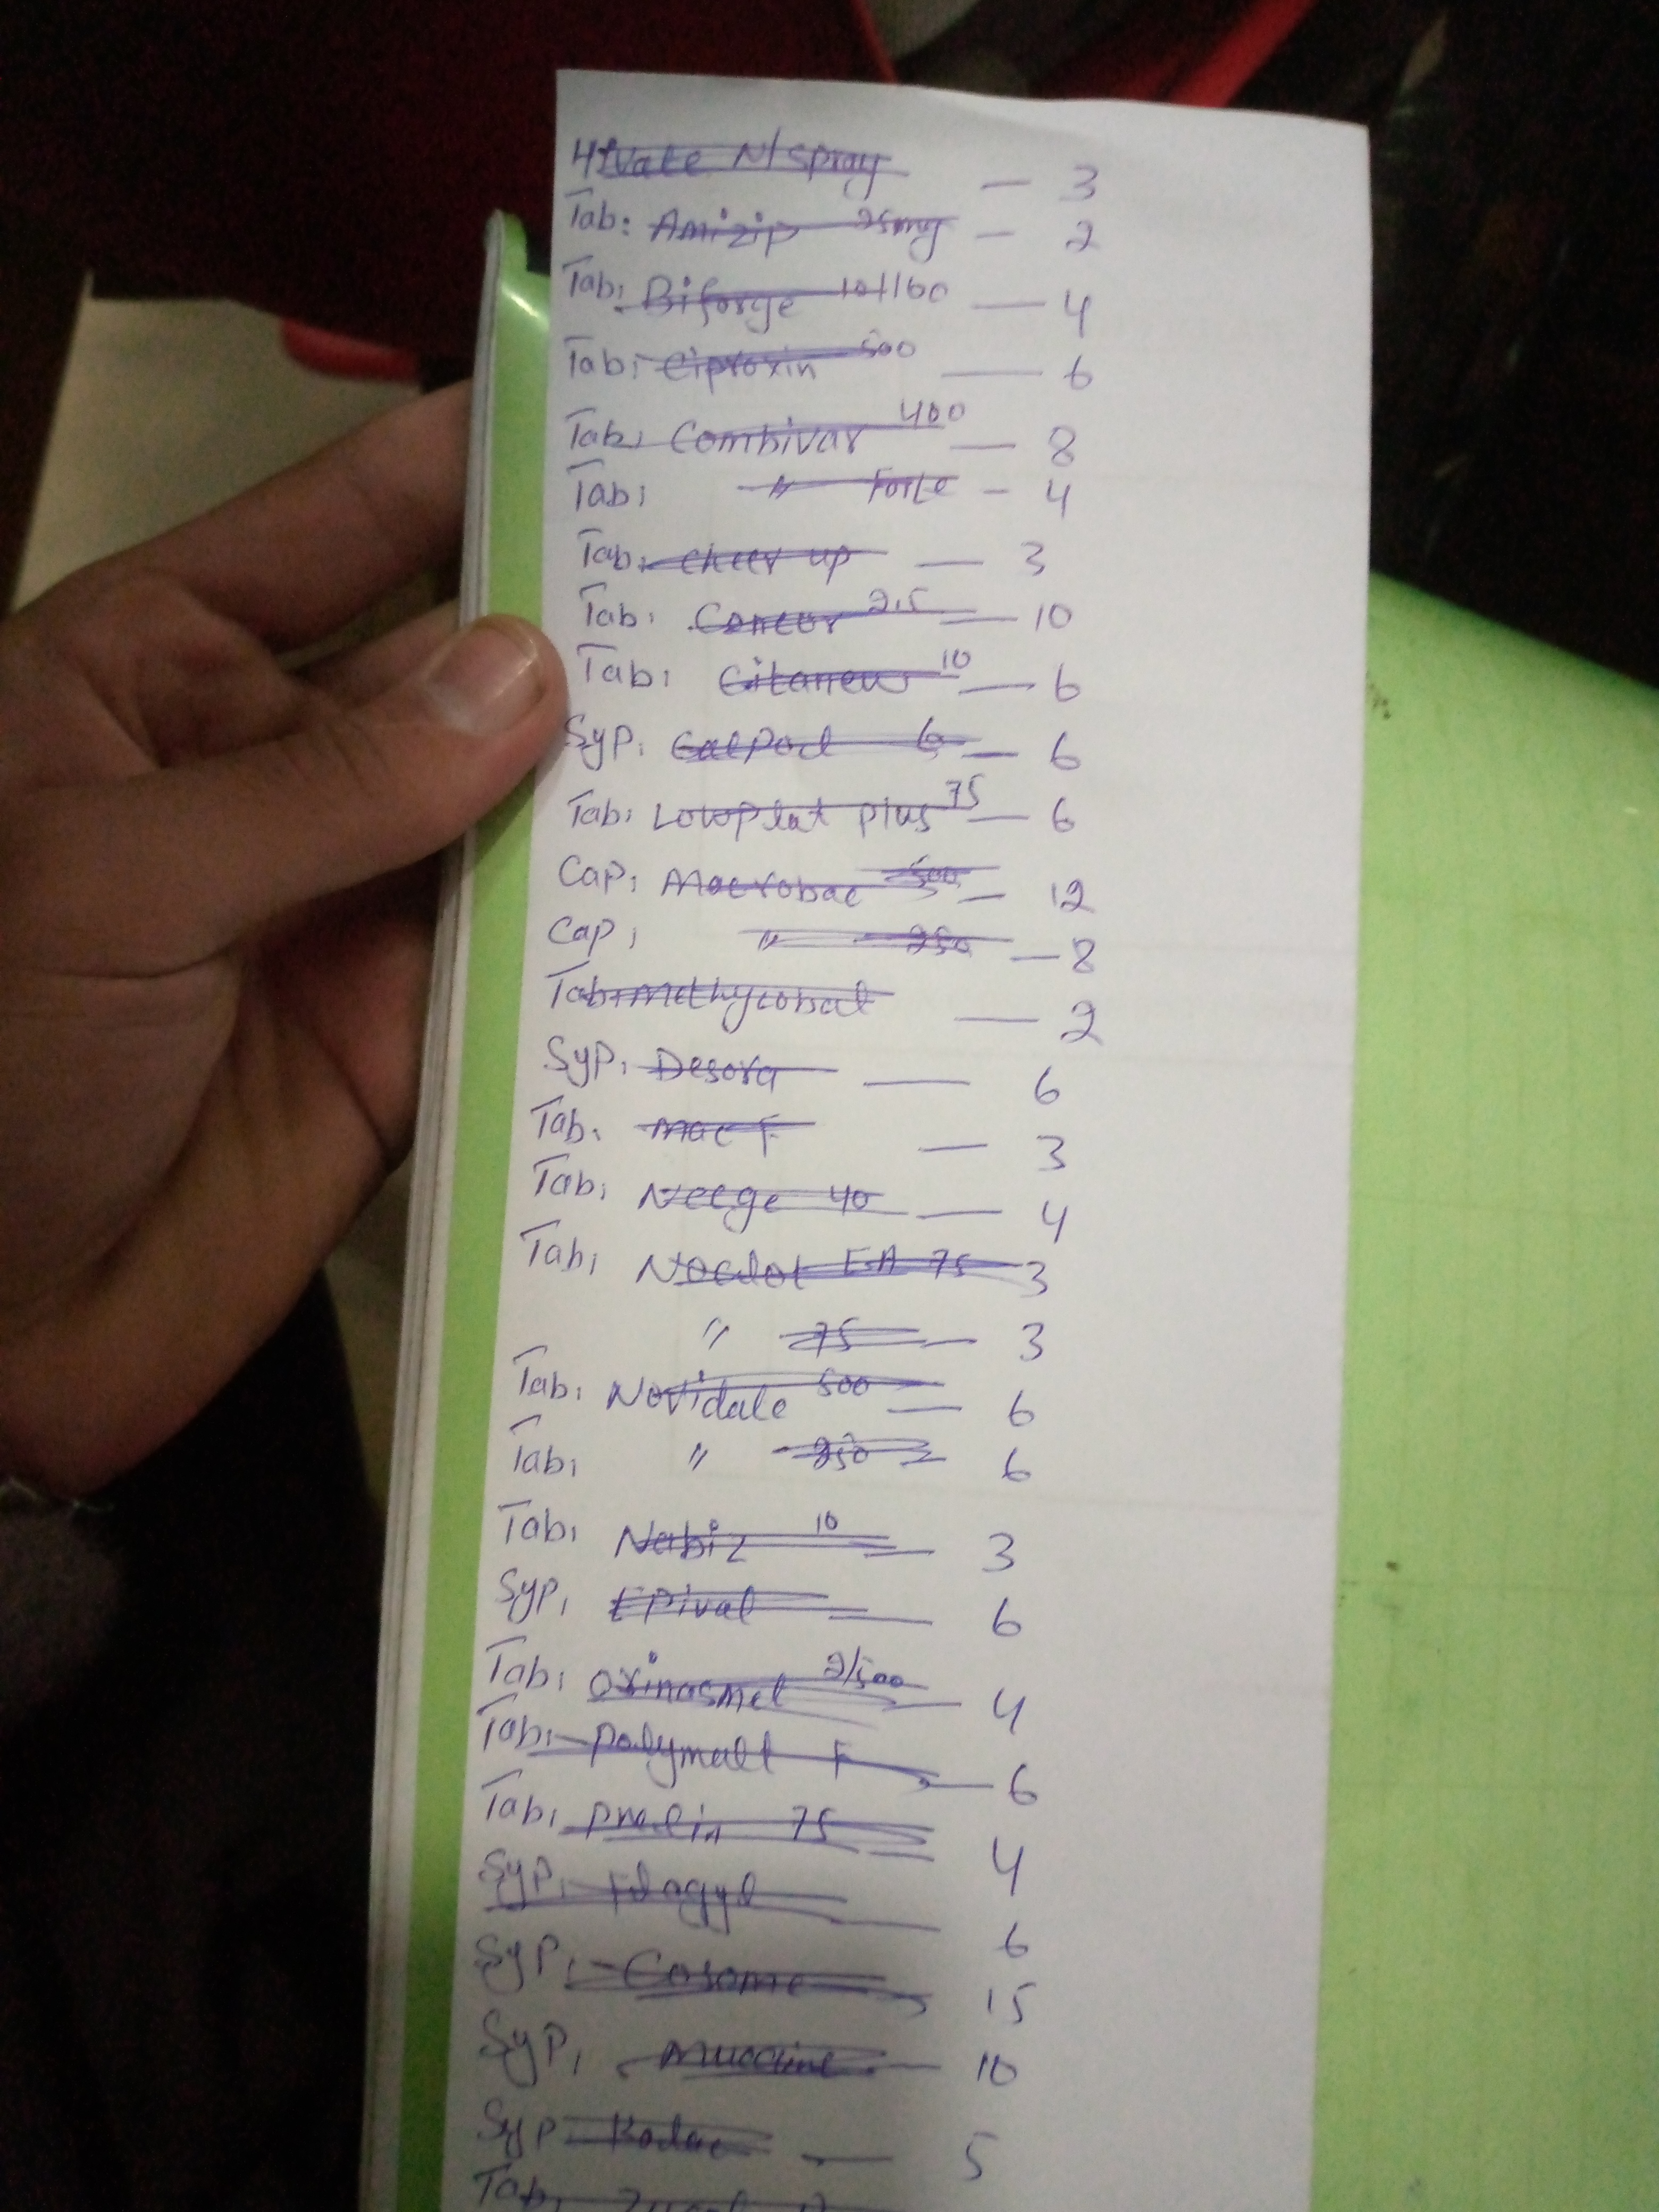 Hivate N/spray — 3
Tab: Amizip 25mg — 2
Tab: Biforge 10/160 — 4
Tab: Ciproxin 500 — 6
Tab: Combivar 400 — 8
Tab: " Forte — 4
Tab: cheer up — 3
Tab: Concor 2.5 — 10
Tab: Citanew 10 — 6
Syp: Calpol 6 — 6
Tab: Lowplat plus 75 — 6
Cap: Macrobac 500 — 12
Cap: " 250 — 8
Tab: methycobal — 2
Syp: Desora — 6
Tab: mac F — 3
Tab: Neege 40 — 4
Tab: Noclot EA 75 — 3
" 75 — 3
Tab: Novidate 500 — 6
Tab: " 250 — 6
Tab: Nabiz 10 — 3
Syp: Epival — 6
Tab: oxinasmel 2/500 — 4
Tab: polymalt F — 6
Tab: prelin 75 — 4
Syp: Flagyl — 6
Syp: Cosome — 15
Syp: — 10
Syp — 5
Tab: